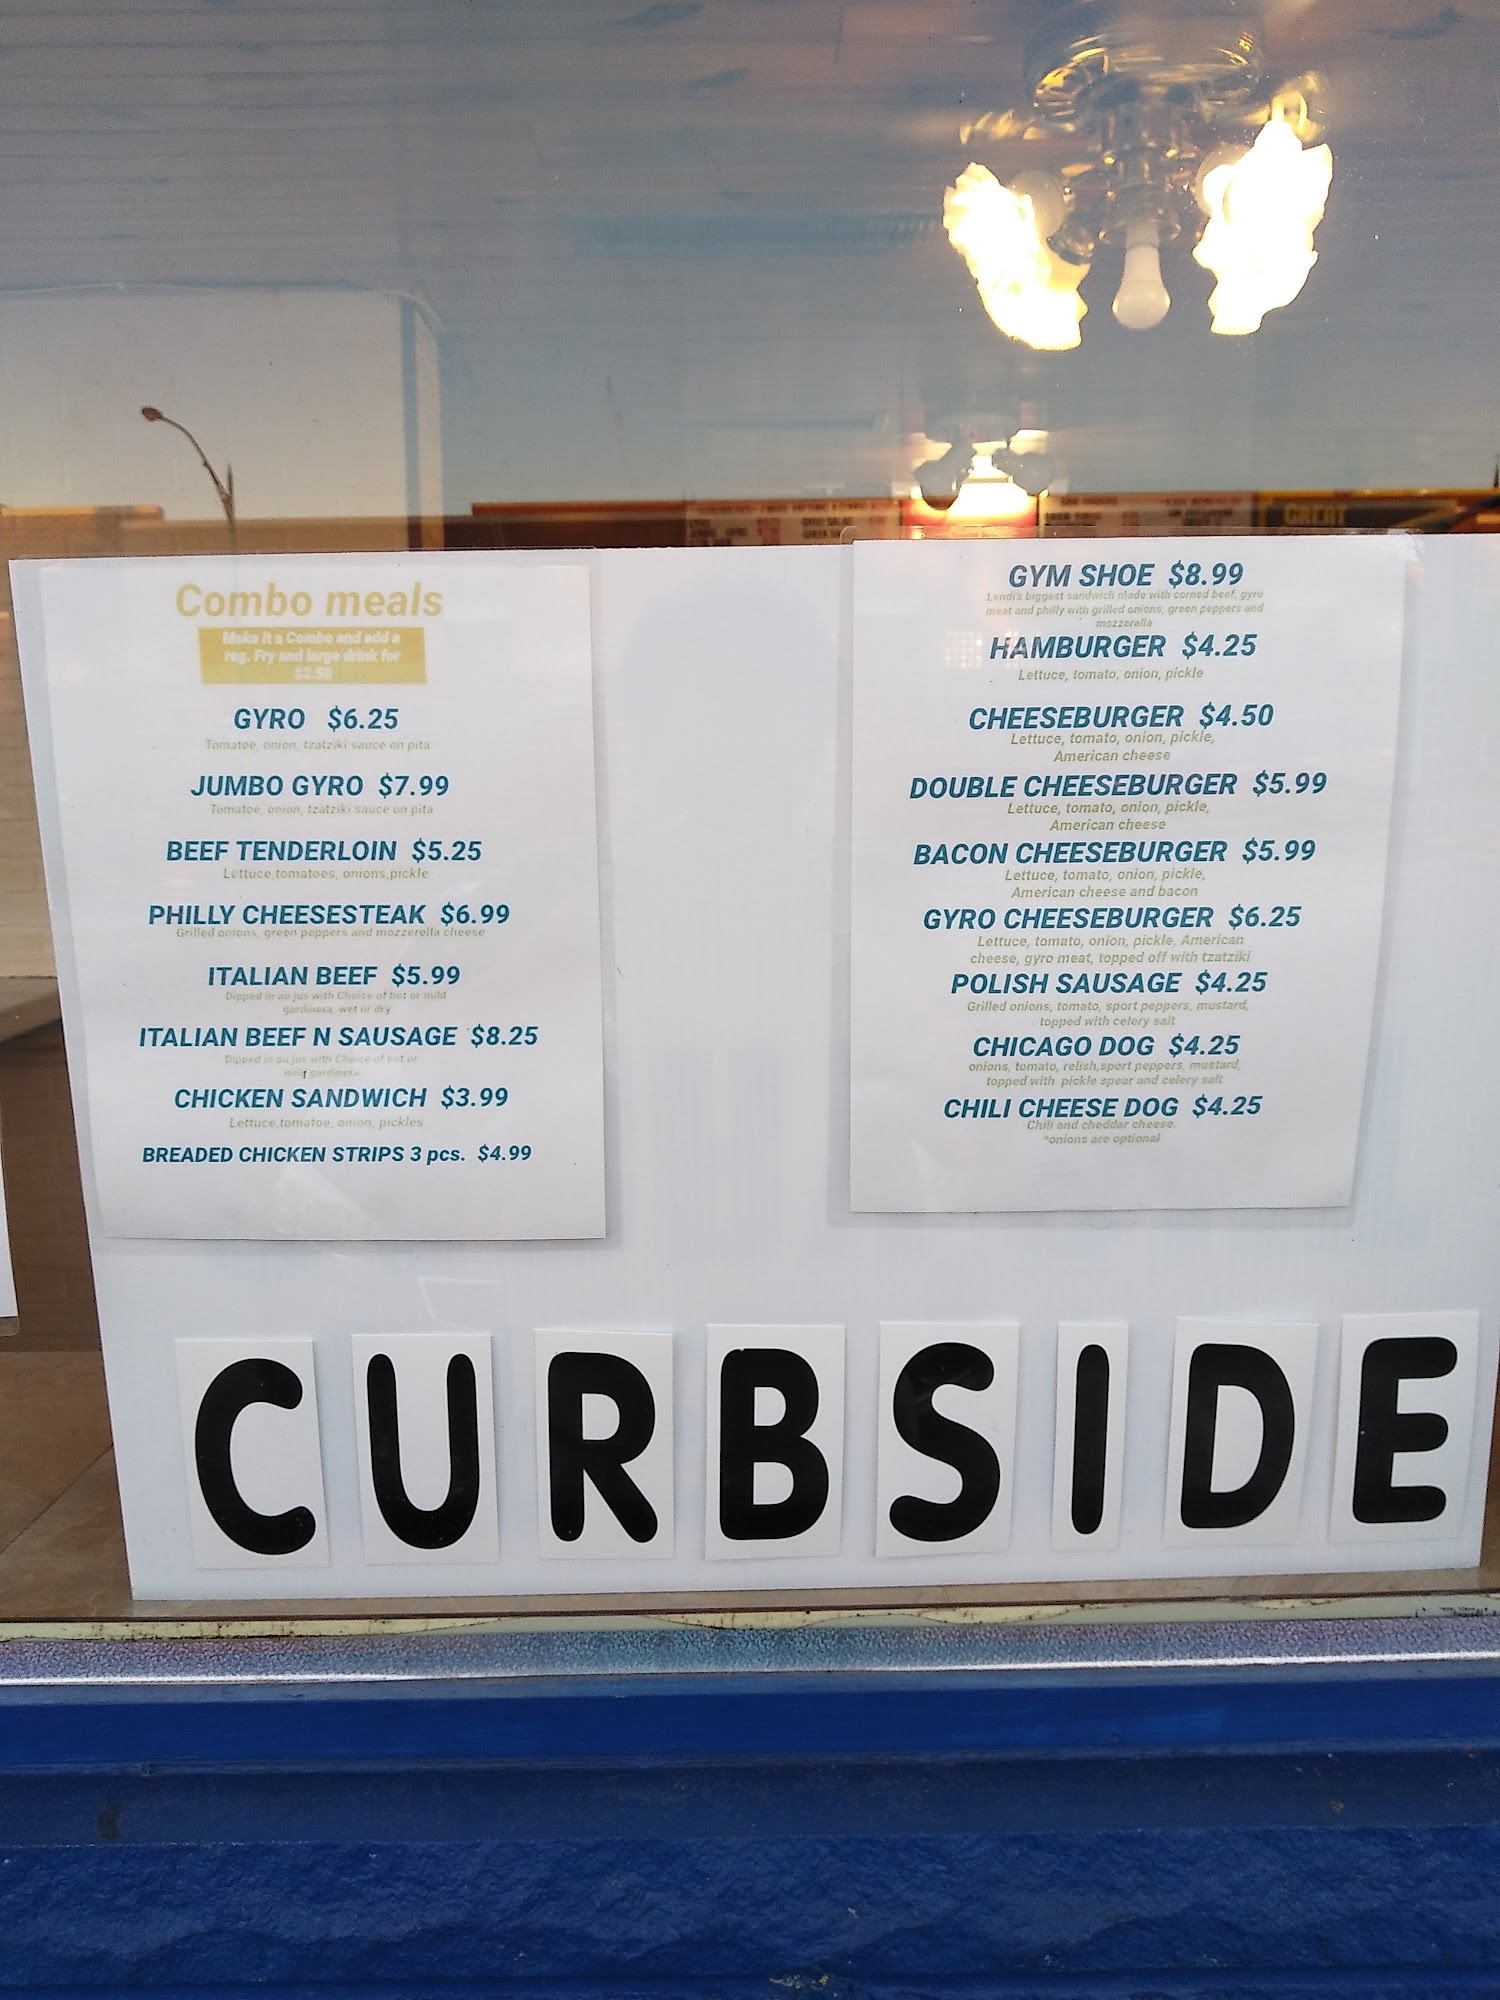 Combo meals
Make it a Combo and add a
reg. Fry and large drink for
$2.50
GYRO $6.25
Tomatoe, onion, tzatziki sauce on pita
JUMBO GYRO $7.99
Tomatoe, onion, tzatziki sauce on pita
BEEF TENDERLOIN $5.25
Lettuce,tomatoes, onions,pickle
PHILLY CHEESESTEAK $6.99
Grilled onions, green peppers and mozzerella cheese
ITALIAN BEEF $5.99
Dipped in au jus with Choice of hot or mild
gardinera, wet or dry
ITALIAN BEEF N SAUSAGE $8.25
Dipped in au jus with Choice of hot or
mild gardinera
CHICKEN SANDWICH $3.99
Lettuce,tomatoe, onion, pickles
BREADED CHICKEN STRIPS 3 pcs. $4.99
GYM SHOE $8.99
Lendi's biggest sandwich made with corned beef, gyro
meat and philly with grilled onions, green peppers and
mozzerella
HAMBURGER $4.25
Lettuce, tomato, onion, pickle
CHEESEBURGER $4.50
Lettuce, tomato, onion, pickle,
American cheese
DOUBLE CHEESEBURGER $5.99
Lettuce, tomato, onion, pickle,
American cheese
BACON CHEESEBURGER $5.99
Lettuce, tomato, onion, pickle,
American cheese and bacon
GYRO CHEESEBURGER $6.25
Lettuce, tomato, onion, pickle, American
cheese, gyro meat, topped off with tzatziki
POLISH SAUSAGE $4.25
Grilled onions, tomato, sport peppers, mustard,
topped with celery salt
CHICAGO DOG $4.25
onions, tomato, relish,sport peppers, mustard,
topped with pickle spear and celery salt
CHILI CHEESE DOG $4.25
Chili and cheddar cheese.
*onions are optional
CURBSIDE
GREAT